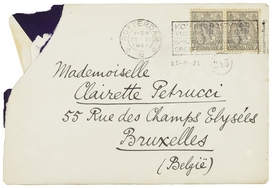 AMSTERDAM
Mademoiselle
Clairette Petrucci
55 Rue des Champs Elysées
Bruxelles
(België)